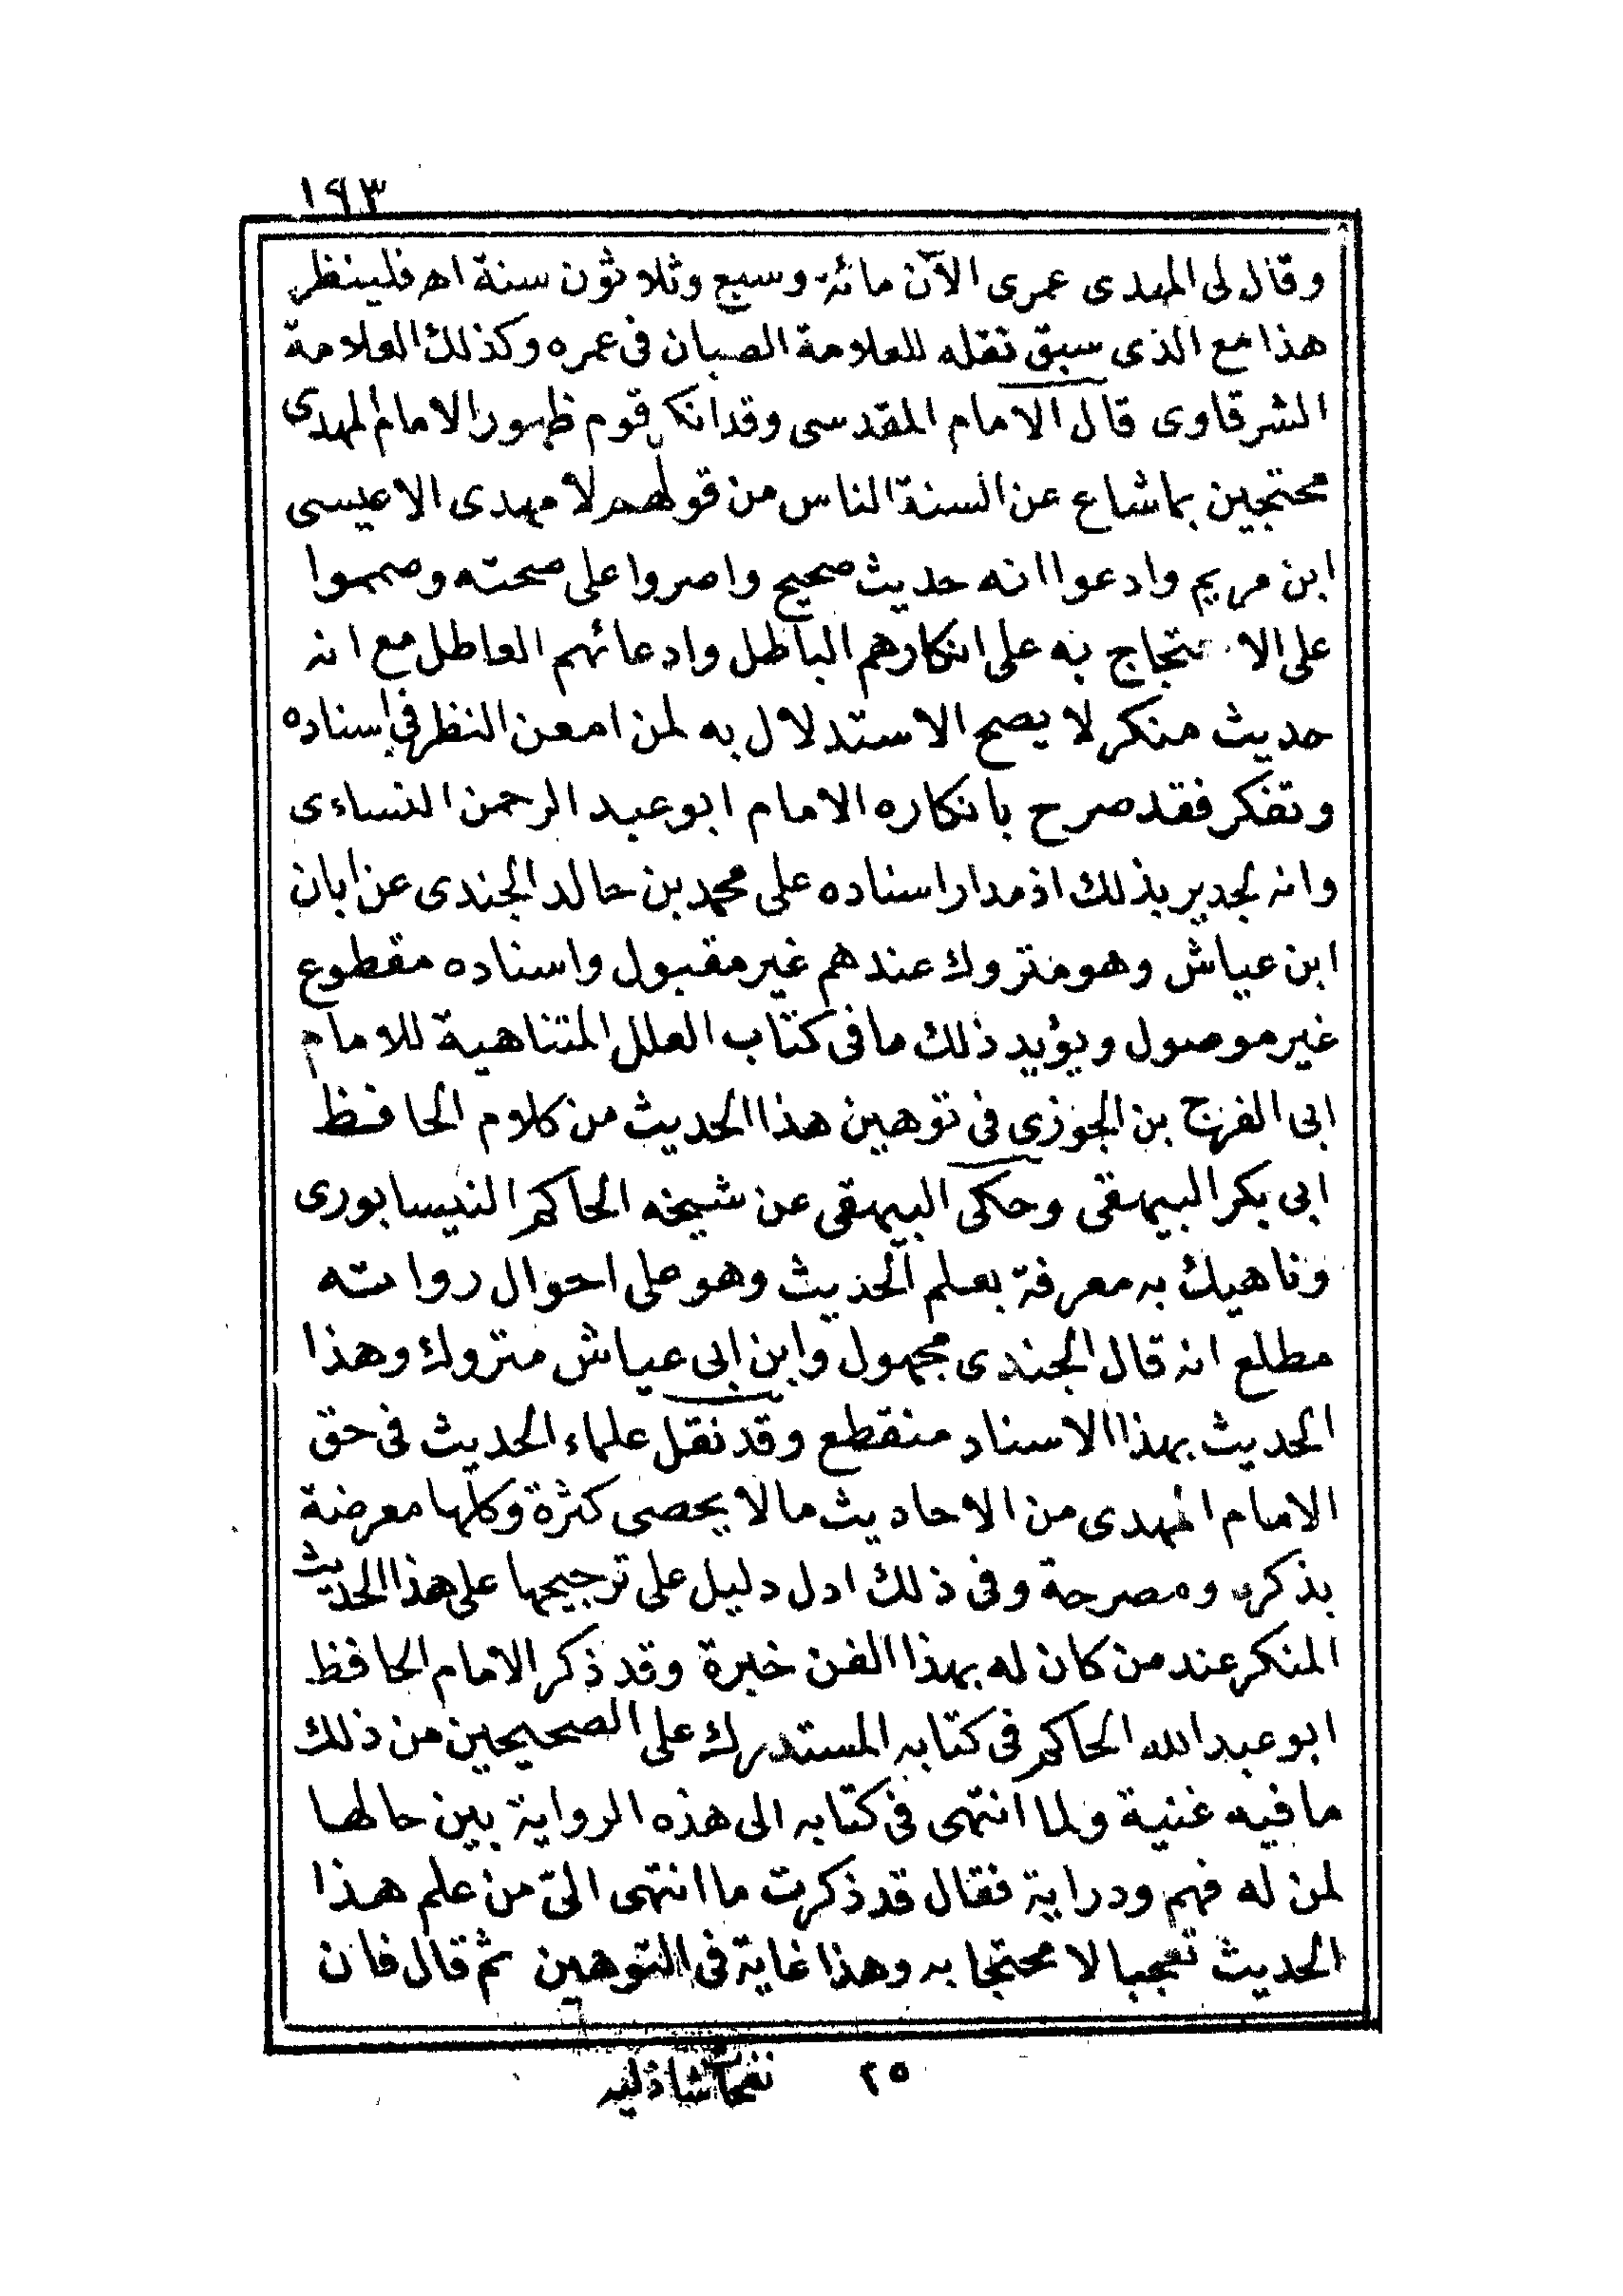 ١٩٣
وقال لى المهدى عمرى الآن مائة وسبع وثلاثون سنة اه فلينظر
هذا مع الذى سبق نقله للعلامة الصبان فى عمره وكذلك العلامة
الشرقاوى قال الامام المقدسى وقد انكر قوم ظهور الامام المهدى
محتجين بما شاع عن السنة الناس من قولهم لا مهدى الا عيسى
ابن مريم وادعوا انه حديث صحيح واصروا على صحته وصمموا
على الاحتجاج به على انكارهم الباطل وادعائهم العاطل مع انه
حديث منكر لا يصح الاستدلال به لمن امعن النظر فى اسناده
وتفكر فقد صرح بانكاره الامام ابو عبد الرحمن النساءى
وانه لجدير بذلك اذ مدار اسناده على محمد بن خالد الجندى عن ابان
ابن عياش وهو متروك عندهم غير مقبول واسناده مقطوع
غير موصول ويؤيد ذلك ما فى كتاب العلل المتناهية للامام
ابى الفرج بن الجوزى فى توهين هذا الحديث من كلام الحافظ
ابى بكر البيهقى وحكى البيهقى عن شيخه الحاكم النيسابورى
وناهيك به معرفة بعلم الحديث وهو على احوال رواته
مطلع انه قال الجندى مجهول وابن ابى عياش متروك وهذا
الحديث بهذا الاسناد منقطع وقد نقل علماء الحديث فى حق
الامام المهدى من الاحاديث ما لا يحصى كثرة وكلها معرضة
بذكره ومصرحة وفى ذلك ادل دليل على ترجيحها على هذا الحديث
المنكر عند من كان له بهذا الفن خبرة وقد ذكر الامام الحافظ
ابو عبد الله الحاكم فى كتابه المستدرك على الصحيحين من ذلك
ما فيه غنية ولما انتهى فى كتابه الى هذه الرواية بين حالها
لمن له فهم ودراية فقال قد ذكرت ما انتهى الىّ من علم هذا
الحديث تعجبا لا محتجا به وهذا غاية فى التوهين ثم قال فان
٢٥ نفحات شاذليه